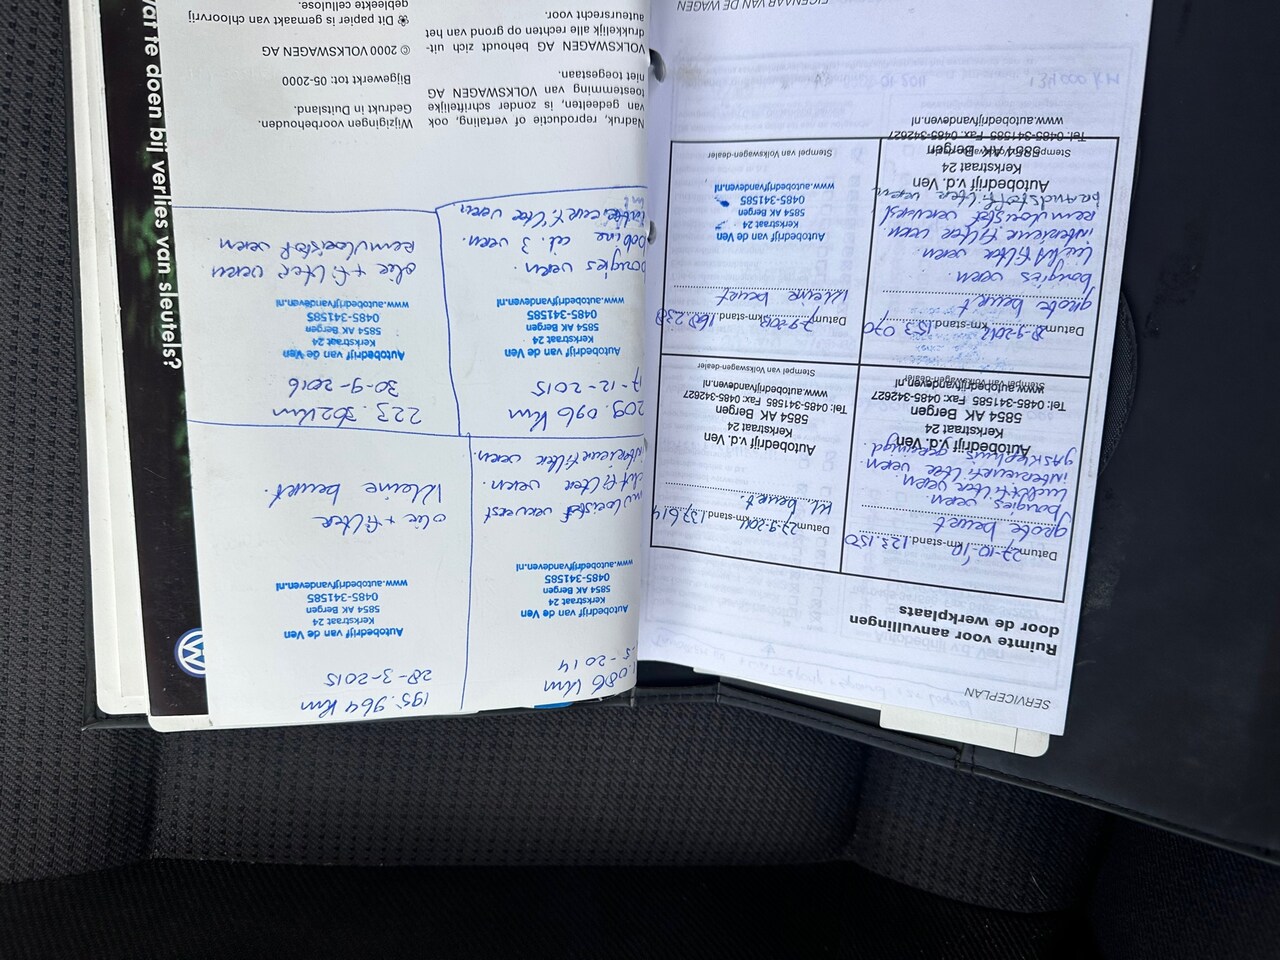 SERVICEPLAN
Ruimte voor aanvullingen
door de werkplaats
Datum 27-10-10 km-stand 123.150
grote beurt
bougies veren.
luchtfilter veren
interieurfilter veren.
gasklephuis gereinigd.
Autobedrijf v.d. Ven
Kerkstraat 24
5854 AK Bergen
Tel: 0485-341585 Fax: 0485-342627
www.autobedrijfvandeven.nl
Stempel van Volkswagen-dealer
Datum 27-9-2011 km-stand 137.614
kl. beurt.
Autobedrijf v.d. Ven
Kerkstraat 24
5854 AK Bergen
Tel: 0485-341585 Fax: 0485-342627
www.autobedrijfvandeven.nl
Stempel van Volkswagen-dealer
km-stand 153.070
grote beurt
bougies veren.
luchtfilter veren.
interieurfilter veren.
remvloeistof ververst
veren
Autobedrijf v.d. Ven
Kerkstraat 24
5854 AK Bergen
Tel: 0485-341585 Fax: 0485-342627
www.autobedrijfvandeven.nl
Datum 7-9-2013 km-stand 168.238
kleine beurt
Autobedrijf van de Ven
Kerkstraat 24
5854 AK Bergen
0485-341585
www.autobedrijfvandeven.nl
Stempel van Volkswagen-dealer
EIGENAAR VAN DE WAGEN
.086 km
-5-2014
Autobedrijf van de Ven
Kerkstraat 24
5854 AK Bergen
0485-341585
www.autobedrijfvandeven.nl
ververst
veren.
interieurfilter veren.
195.964 km
28-3-2015
Autobedrijf van de Ven
Kerkstraat 24
5854 AK Bergen
0485-341585
www.autobedrijfvandeven.nl
olie + filter
kleine beurt.
209.096 km
17-12-2015
Autobedrijf van de Ven
Kerkstraat 24
5854 AK Bergen
0485-341585
www.autobedrijfvandeven.nl
bougies veren.
bobine cil. 3 veren.
veren
223.302 km
30-9-2016
Autobedrijf van de Ven
Kerkstraat 24
5854 AK Bergen
0485-341585
www.autobedrijfvandeven.nl
olie + filter veren
remvloeistof veren
Nadruk, reproductie of vertaling, ook
van gedeelten, is zonder schriftelijke
toestemming van VOLKSWAGEN AG
niet toegestaan.
VOLKSWAGEN AG behoudt zich uit-
drukkelijk alle rechten op grond van het
auteursrecht voor.
Wijzigingen voorbehouden.
Gedrukt in Duitsland.
Bijgewerkt tot: 05-2000
© 2000 VOLKSWAGEN AG
Dit papier is gemaakt van chloorvrij
gebleekte cellulose.
at te doen bij verlies van sleutels?